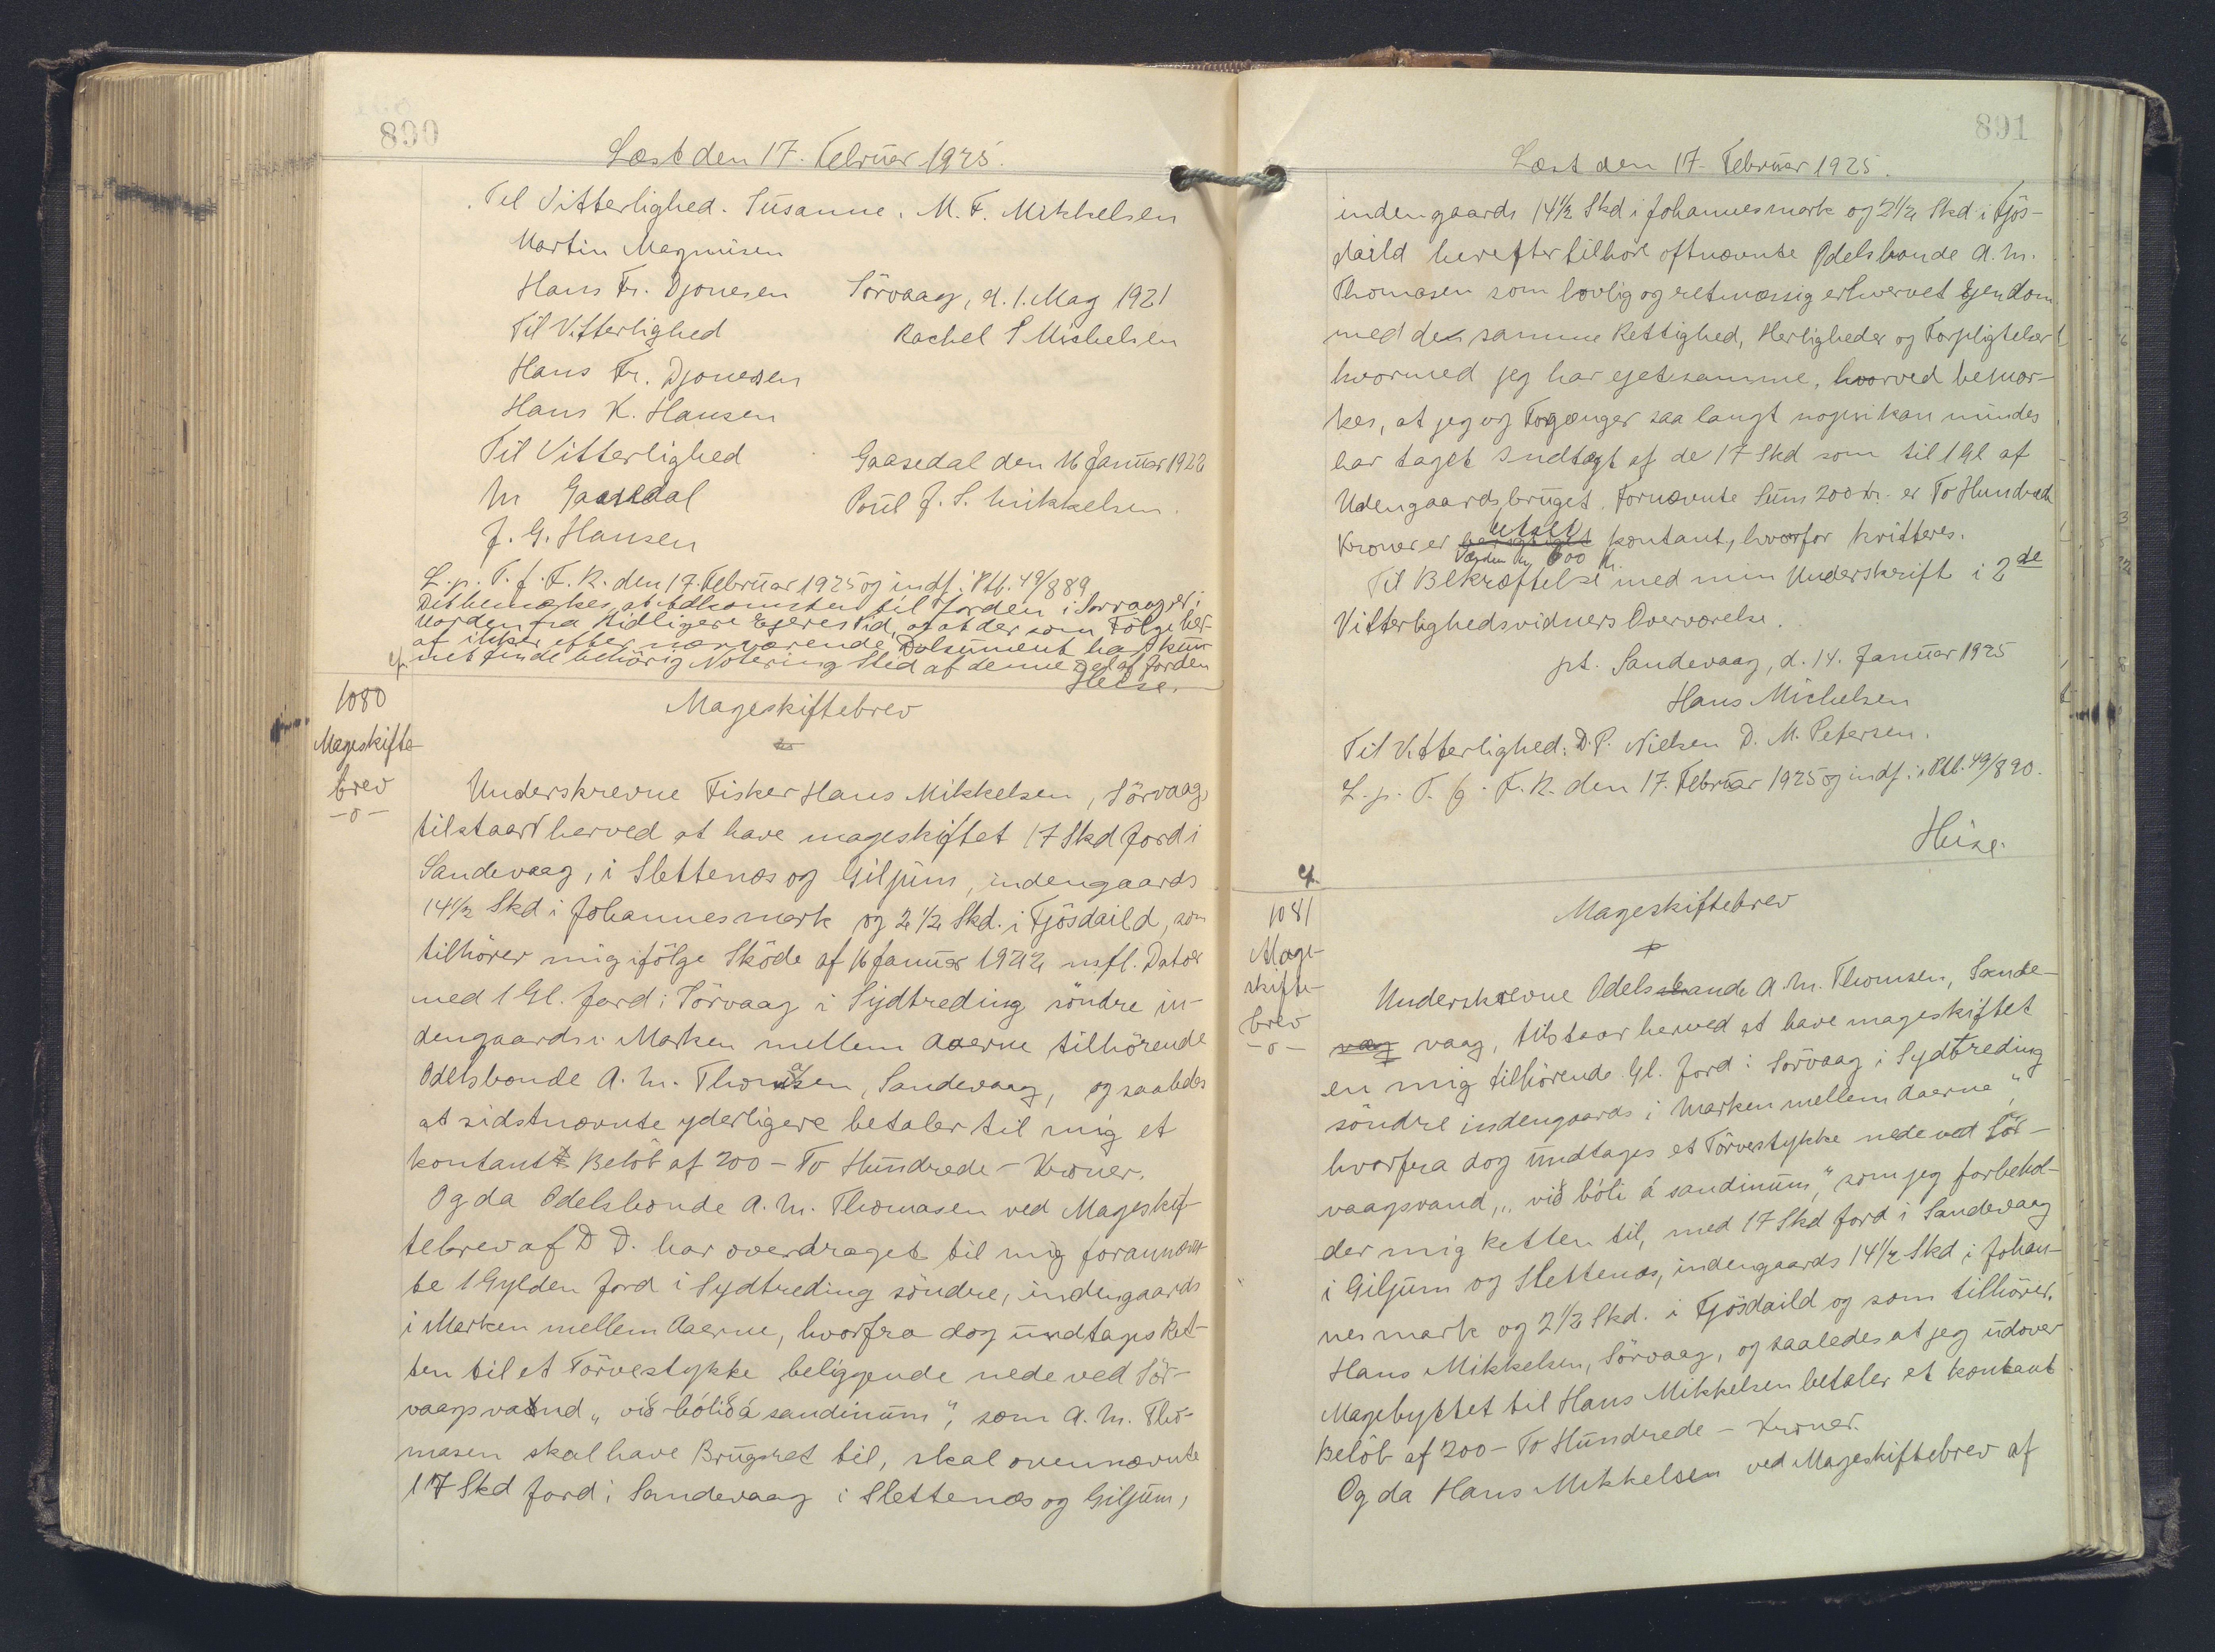 890
Læst den 17. Februar 1925.
Til Vitterlighed. Susanne. M. F. Mikkelsen
Martin Magnusen
Hans Fr. Djonesen Sörvaag, d. 1. Mag 1921
Til Vitterlighed Rachel S Michelsen
Hans Fr. Djonesen
Hans K. Hansen
Til Vitterlighed Gaasedal den 16 Januar 1922
M Gaasedal Poul J. S. Mikkelsen.
J. G. Hansen
L. p. T. f. F. R. den 17. Februar 1925 og indf. i Ptb. 49/889
Det bemærkes, at Adkomsten til Jorden i Sörvaag er i
Uorden fra tidligere Ejeres Tid, og at der som Fölge her-
af ikke efter nærværende Dokument har kun-
net finde behörig Notering Sted af denne Del af Jorden
Heise.
1080
Mageskifte-
brev
-o-
Mageskiftebrev
Underskrevne Fisker Hans Mikkelsen, Sörvaag,
tilstaar herved at have mageskiftet 17 Skd Jord i
Sandevaag, i Slettenæs og Giljum, indengaards
14 1/2 Skd i Johannesmark og 2 1/2 Skd. i Fjösdaild, som
tilhörer mig ifölge Sköde af 16 Januar 1922 m fl. Datoer
med 1 Gl. Jord i Sörvaag i Sydtreding söndre in-
dengaards i Marken mellem Aaerne tilhörende
Odelsbonde A. M. Thomasen, Sandevaag, og saaledes
at sidstnævnte yderligere betaler til mig et
kontant Belöb af 200 - To Hundrede - Kroner.
Og da Odelsbonde A. M. Thomasen ved Mageskif-
tebrev af D D. har overdraget til mig forannævn-
te 1 Gylden Jord i Sydtreding söndre, indengaards
i Marken mellem Aaerne, hvorfra dog undtages Ret-
ten til et Törvestykke beliggende nede ved Sör-
vaagsvand „við bólið á sandinum", som A. M. Tho-
masen skal have Brugsret til, skal ovennævnte
17 Skd Jord i Sandevaag i Slettenæs og Giljum,
891
Læst den 17. Februar 1925.
indengaards 14 1/2 Skd i Johannesmark og 2 1/2 Skd i Fjös-
daild herefter tilhöre oftnævnte Odelsbonde A. M.
Thomasen som lovlig og retmæssig erhvervet Ejendom
med den samme Rettighed, Herligheder og Forpligtelser
hvormed jeg har ejet samme, hvorved bemær-
kes, at jeg og Forgænger saa langt nogen kan mindes
har taget Indtægt af de 17 Skd som til 1 Gl af
Udengaardsbruget. Fornævnte Sum 200 Kr. er To Hundrede
Kroner er betalt kontant, hvorfor kvitteres.
Værdien Kr 600 Kr.
Til Bekræftelse med min Underskrift i 2de
Vitterlighedsvidners Overværelse.
pt. Sandevaag, d. 14. Januar 1925
Hans Michelsen
Til Vitterlighed: D. P. Nielsen D. M. Petersen.
L. p. T. f. F. R. den 17. Februar 1925 og indf. i Ptb. 49/890.
Heise.
1081
Mage-
skifte-
brev
-o-
Mageskiftebrev
Underskrevne Odelsbande A. M. Thomsen, Sande-
vaag, tilstaar herved at have mageskiftet
en mig tilhörende Gl. Jord i Sörvaag i Sydtreding
söndre indengaards i Marken mellem Aaerne",
hvorfra dog undtages et Törvestykke nede ved Sör-
vaagsvand, „við bóli á sandinum", som jeg forbehol-
der mig Retten til, med 17 Skd Jord i Sandevaag
i Giljum og Slettenæs, indengaards 14 1/2 Skd i Johan-
nesmark og 2 1/2 Skd. i Fjösdaild og som tilhörer.
Hans Mikkelsen, Sörvaag, og saaledes at jeg udover
Magebyttet til Hans Mikkelsen betaler et kontant
Belöb af 200 - To Hundrede - Kroner.
Og da Hans Mikkelsen ved Mageskiftebrev af